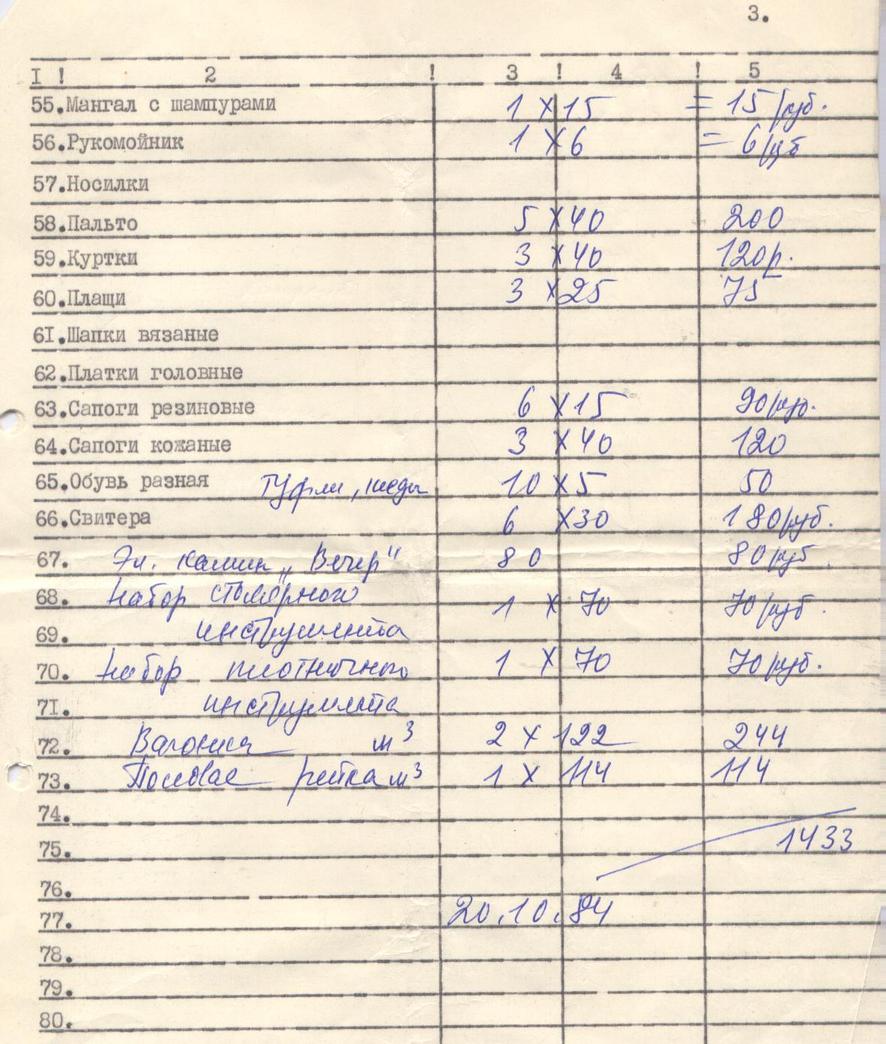 3.
I ! 2 ! 3 ! 4 ! 5
55.Мангал с шампурами 1 х 15 = 15 руб.
56.Рукомойник 1 х 6 = 6 руб
57.Носилки
58.Пальто 5 х 40 200
59.Куртки 3 х 40 120р.
60.Плащи 3 х 25 75
6I.Шапки вязаные
62.Платки головные
63.Сапоги резиновые 6 х 15 90 руб.
64.Сапоги кожаные 3 х 40 120
65.Обувь разная туфли, кеды 10 х 5 50
66.Свитера 6 х 30 180 руб.
67. Эл. камин „Вечер" 80 80 руб
68. Набор столярного 1 х 70 70 руб.
69. инструмента
70. Набор плотничного 1 х 70 70 руб.
7I. инструмента
72. Вагонка м³ 2 х 122 244
73. Половая рейка м³ 1 х 114 114
74.
75. 1433
76.
77. 20.10.84
78.
79.
80.